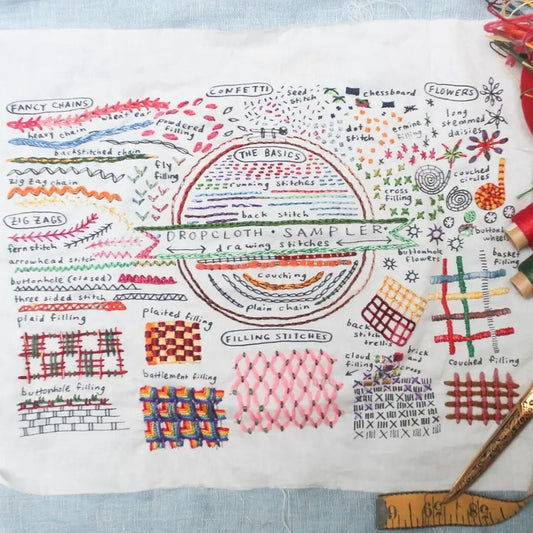 FANCY CHAINS
wheat ear
heavy chain
backstitched chain
zig zag chain
CONFETTI
seed
stitch
chessboard
powdered
filling
dot
stitch
ermine
filling
fly
filling
cross
filling
FLOWERS
long
stemmed
daisies
couched
circles
buttonhole
wheels
buttonhole
flowers
THE BASICS
running stitches
back stitch
DROPCLOTH · SAMPLER
drawing stitches
couching
plain chain
ZIG ZAGS
fern stitch
arrowhead stitch
buttonhole (closed)
three sided stitch
FILLING STITCHES
plaid filling
plaited filling
battlement filling
buttonhole filling
back
stitch
trellis
cloud
filling
brick
and
cross
basket
filling
couched filling